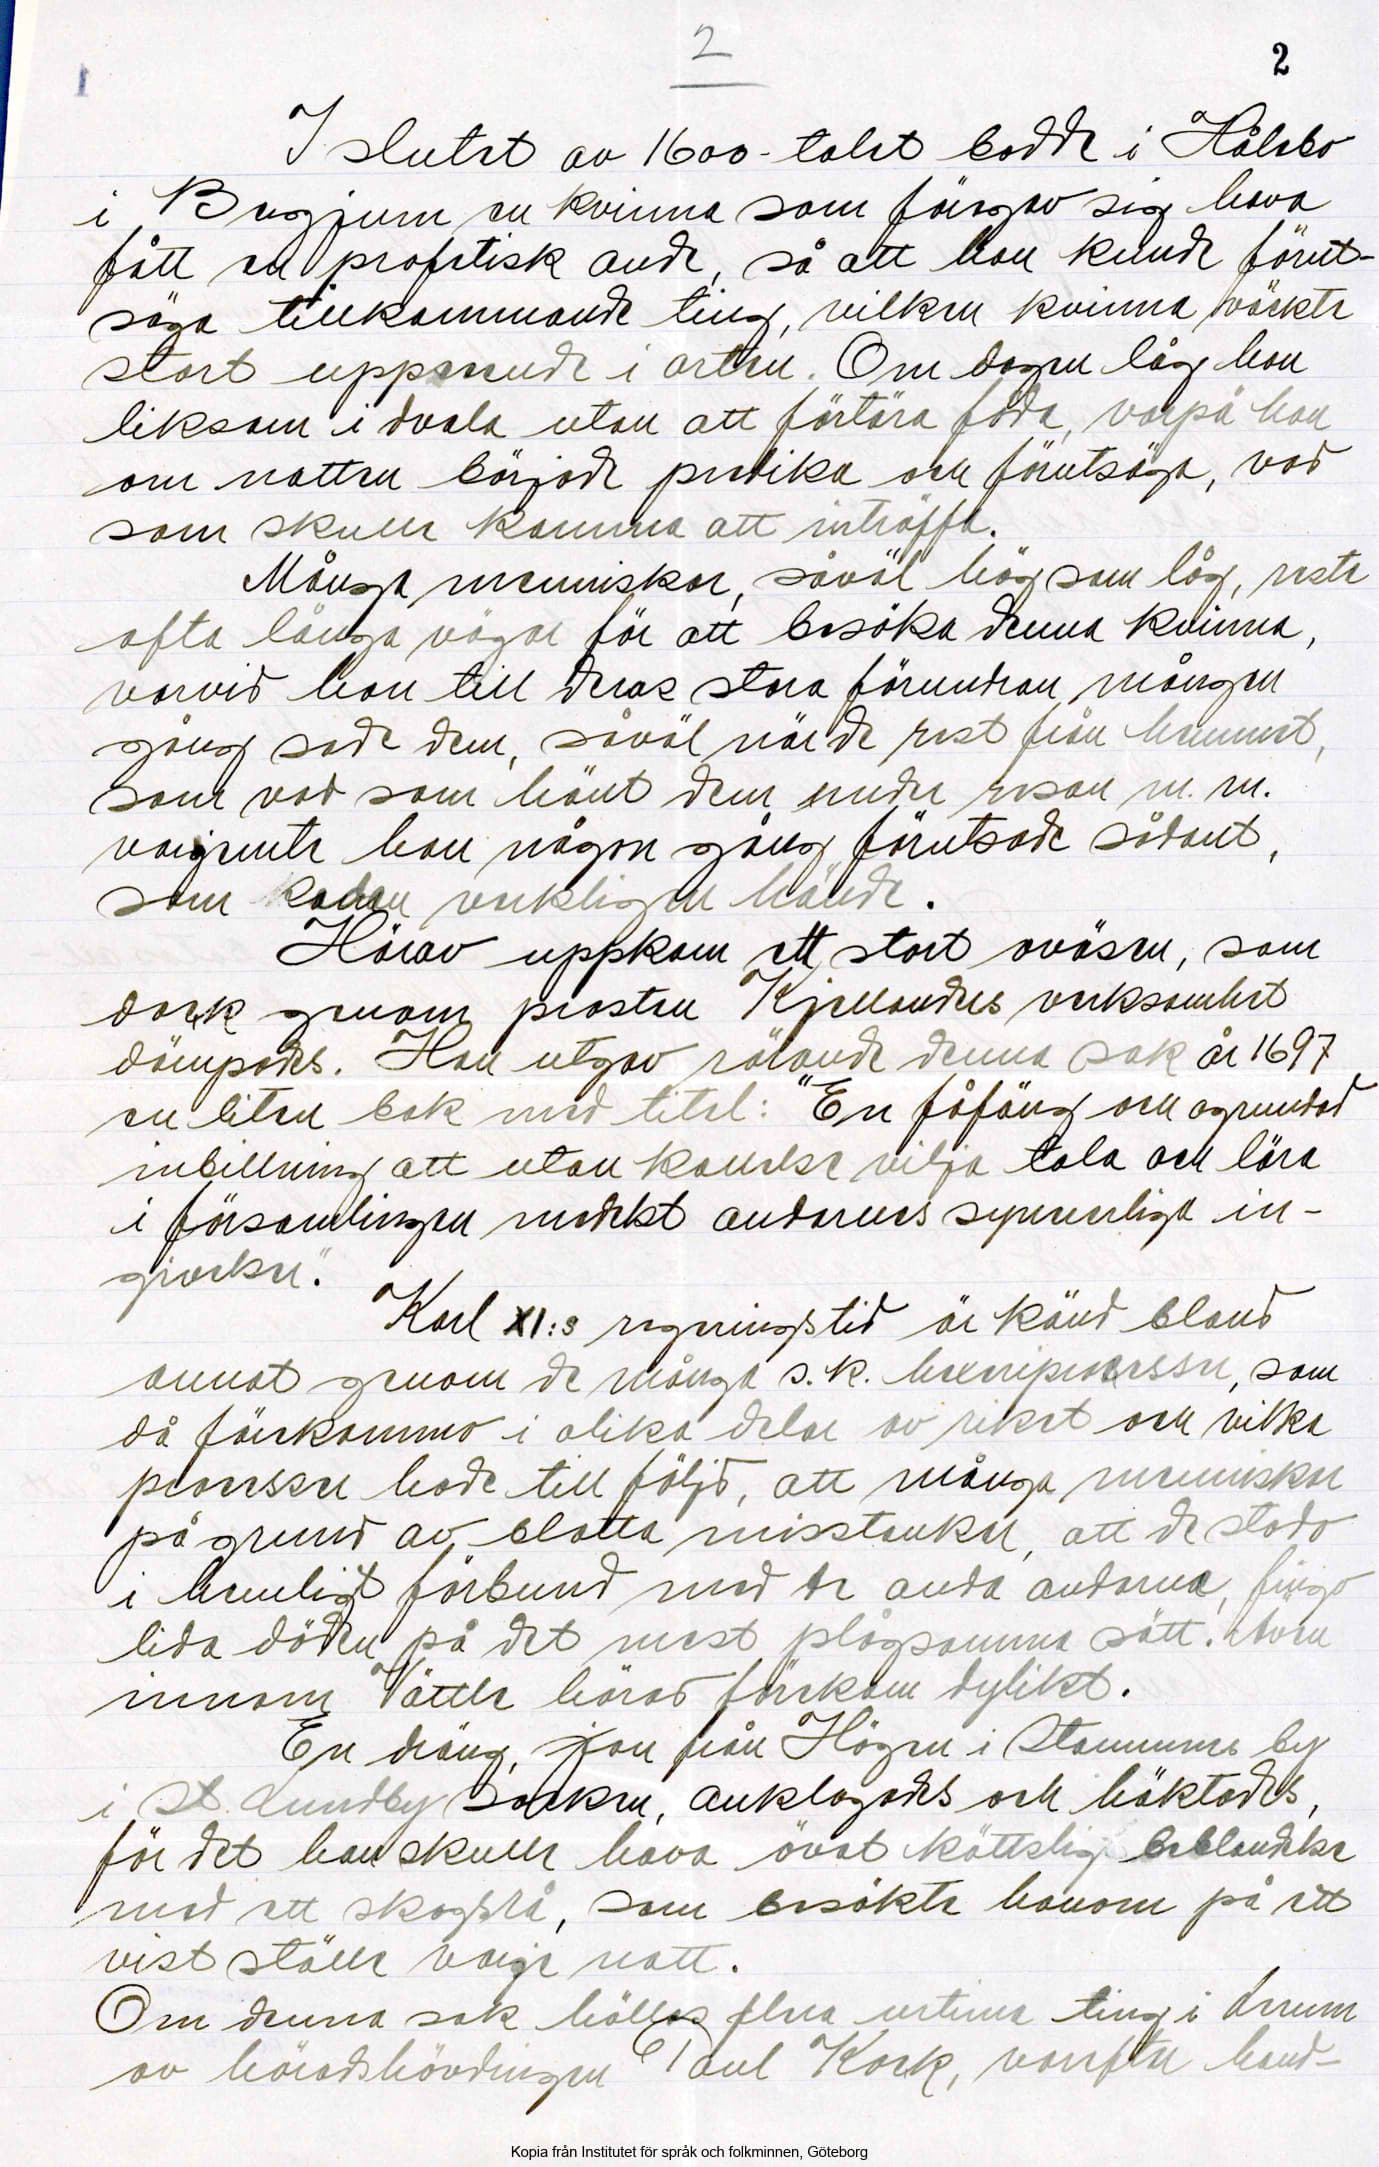 2
2
1
I slutet av 1600-talet bodde i Hålebo
i Bergjum en kvinna som föregav sig hava
fått en profetisk ande, så att hon kunde förut-
säga tillkommande ting, vilken kvinna väckte
stort uppseende i orten. Om dagen låg hon
liksom i dvala utan att förtära föda, varpå hon
om natten började predika och förutsäga, vad
som skulle komma att inträffa.
Många menniskor, såväl hög som låg, reste
ofta långa vägar för att besöka denna kvinna,
varvid hon till deras stora förundran mången
gång sade dem, såväl när de rest från hemmet,
som vad som hänt dem under resan m. m.
varjemte hon någon gång förutsade sådant,
som sedan verkligen hände.
Härav uppkom ett stort oväsen, som
dock genom prosten Kjellanders verksamhet
dämpades. Han utgav rörande denna sak år 1697
en liten bok med titel: "En fåfäng och ogrundad
inbillning att utan kallelse vilja tala och lära
i församlingen medelst andarnes synnerliga in-
givelser."
Karl XI:s regeringstid är känd bland
annat genom de många s.k. hexeriprocesser, som
då förekommo i olika delar av riket och vilka
processer hade till följd, att många menniskor
på grund av blotta misstankar, att de stodo
i hemligt förbund med de onda andarna, fingo
lida döden på det mest plågsamma sätt. Även
innom Vättle härad förekom dylikt.
En dräng, Jon från Högen i Stamnums by
i St. Lundby socken, anklagades och häktades,
för det han skulle hava övat köttslig beblandelse
med ett skogsrå, som besökte honom på ett
vist ställe varje natt.
Om denna sak hölls flera urtima ting i Lerum
av häradshövdingen Paul Kock, varefter hand-
Kopia från Institutet för språk och folkminnen, Göteborg